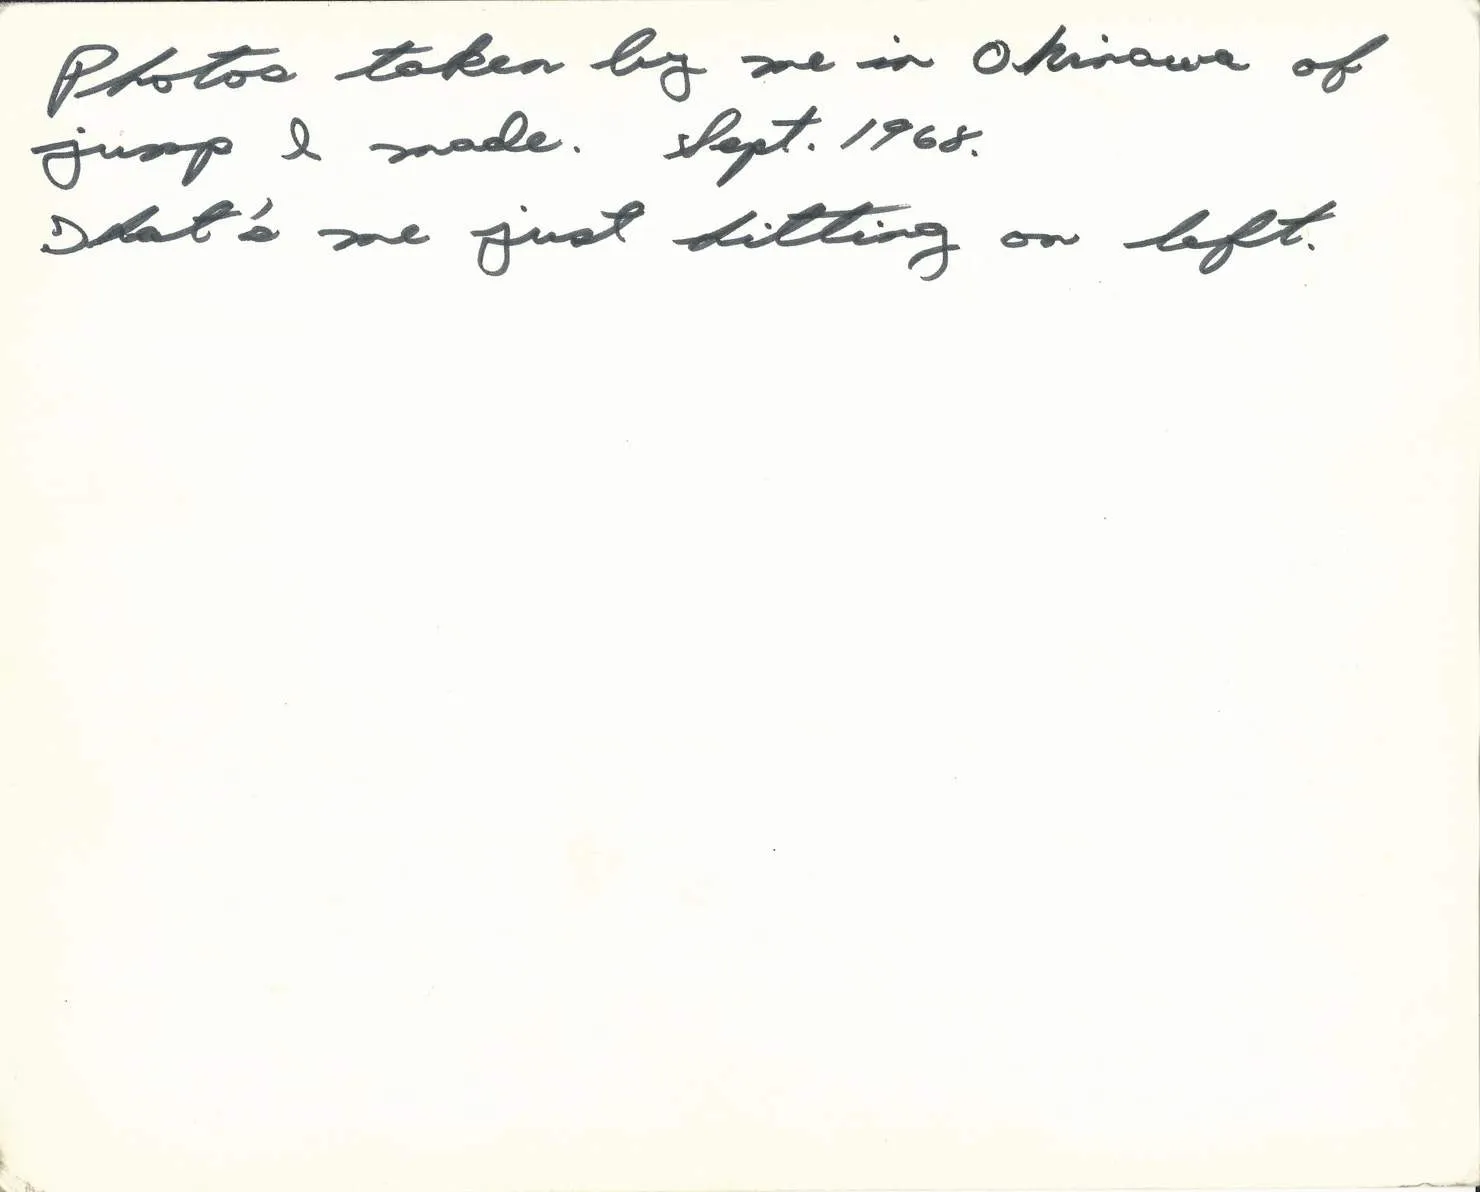 Photos taken by me in Okinawa of
jump I made. Sept. 1968.
That's me just sitting on left.